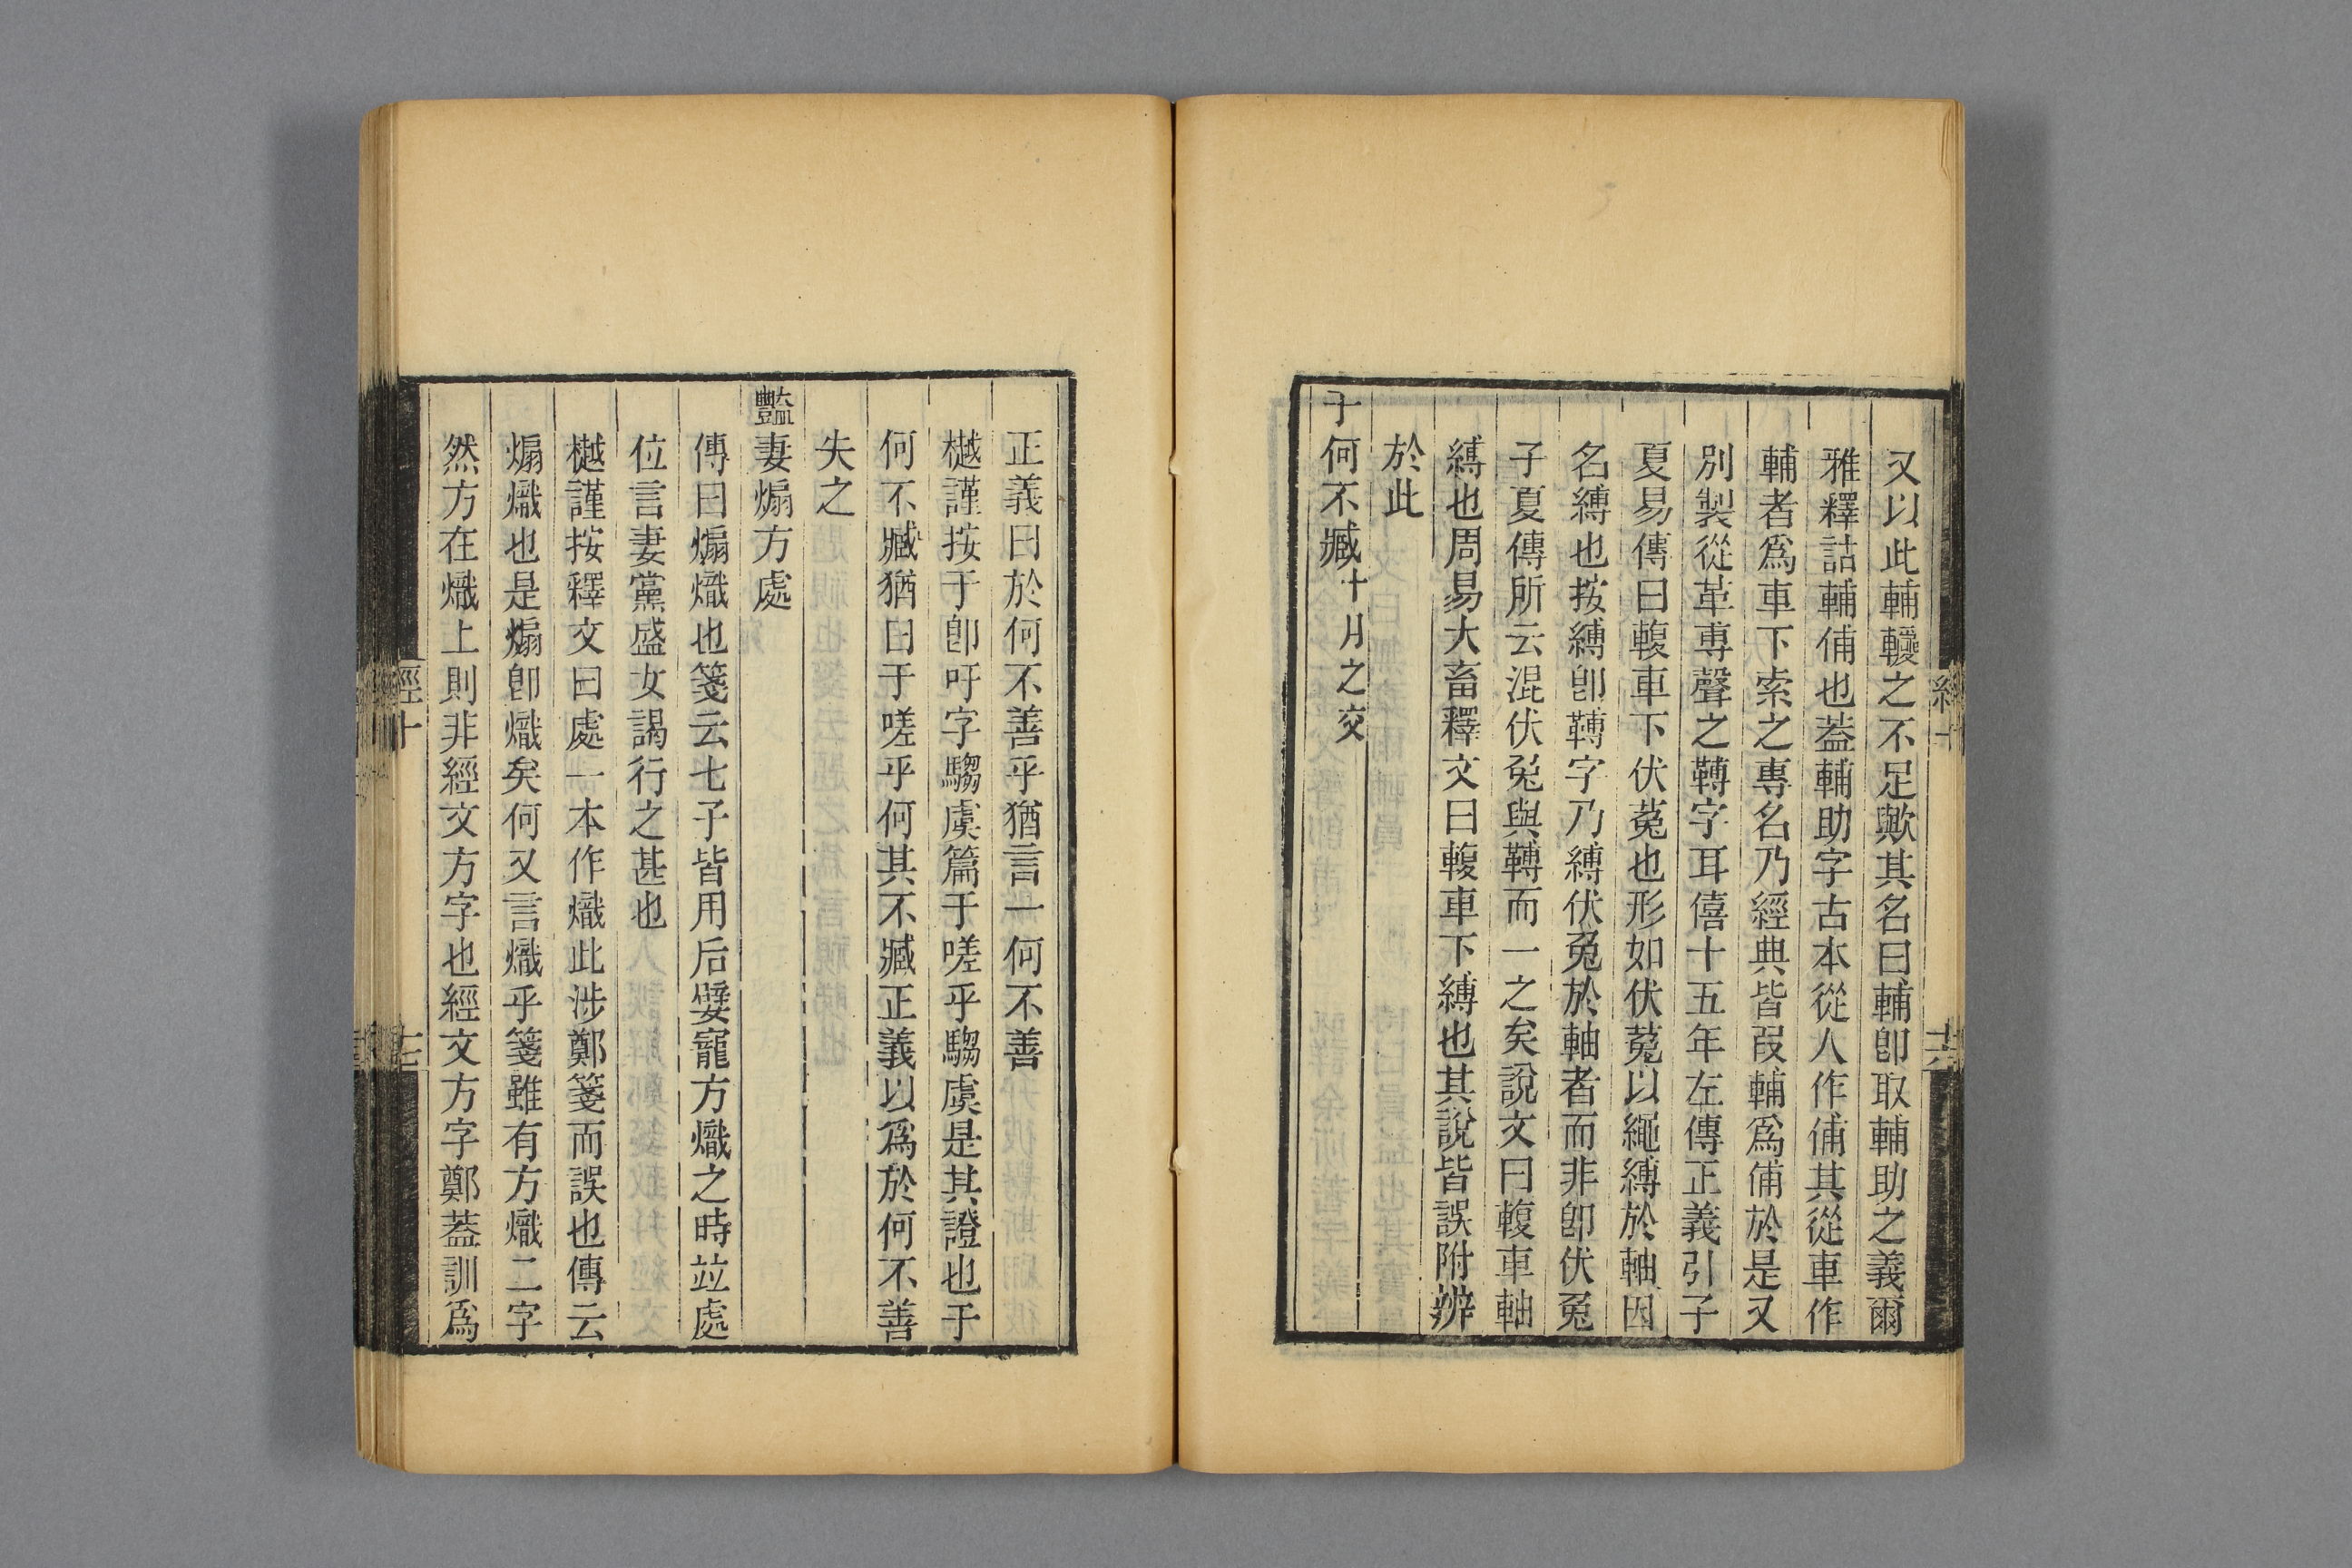 又以此輔轐之不足歟其名曰輔卽取輔助之義爾
雅釋詁輔俌也葢輔助字古本從人作俌其從車作
輔者爲車下索之專名乃經典皆叚輔爲俌於是又
別製從革尃聲之𩌏字耳僖十五年左傳正義引子
夏易傳曰輹車下伏菟也形如伏菟以繩縛於軸因
名縛也按縛卽𩌏字乃縛伏兔於軸者而非卽伏兔
子夏傳所云混伏兔與𩌏而一之矣說文曰輹車軸
縛也周易大畜釋文曰輹車下縛也其說皆誤附辨
於此
于何不臧十月之交
正義曰於何不善乎猶言一何不善
樾謹按于卽吁字騶虞篇于嗟乎騶虞是其證也于
何不臧猶曰于嗟乎何其不臧正義以爲於何不善
失之
豔妻煽方處
傳曰煽熾也箋云七子皆用后嬖寵方熾之時竝處
位言妻黨盛女謁行之甚也
樾謹按釋文曰處一本作熾此涉鄭箋而誤也傳云
煽熾也是煽卽熾矣何又言熾乎箋雖有方熾二字
然方在熾上則非經文方字也經文方字鄭葢訓爲
經十
十七